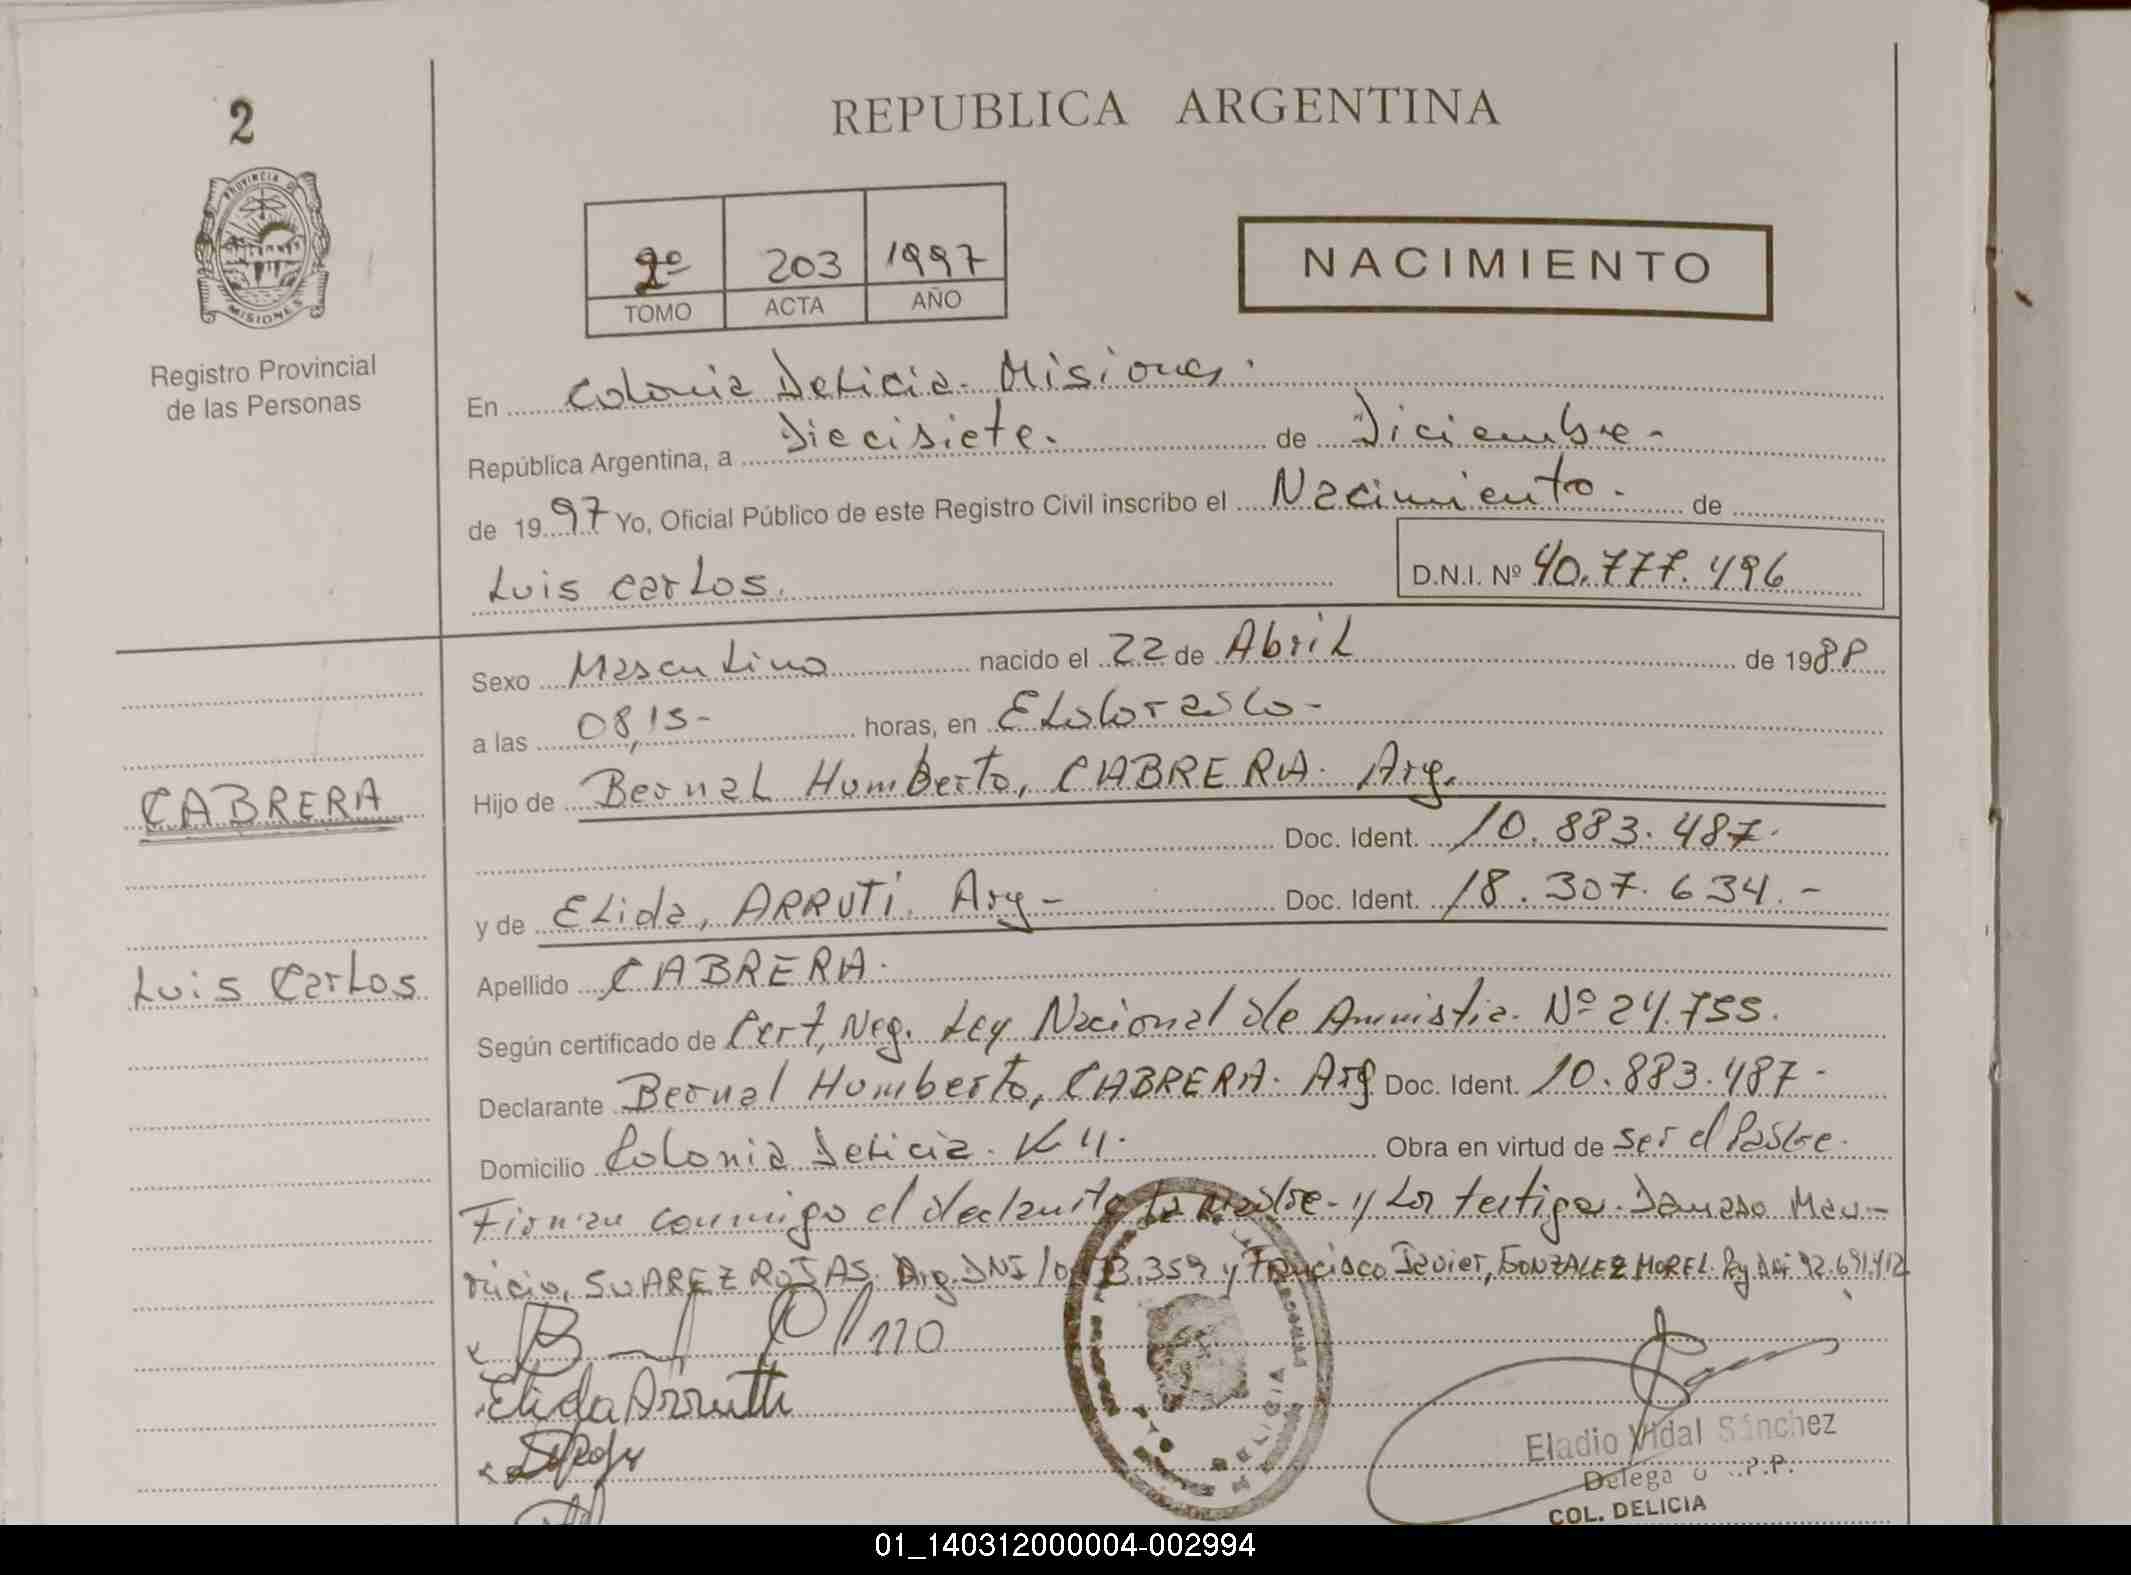 2
REPUBLICA ARGENTINA
PROVINCIA DE
MISIONES
Registro Provincial
de las Personas
2º 203 1997
TOMO ACTA AÑO
NACIMIENTO
En Colonia Delicia. Misiones.
República Argentina, a Diecisiete. de Diciembre.
de 1997 Yo, Oficial Público de este Registro Civil inscribo el Nacimiento. de
Luis Carlos. D.N.I. Nº 40.777.496
Sexo Masculino nacido el 22 de Abril de 1988
a las 08,15- horas, en Eldorado-
CABRERA
Hijo de Bernal Humberto, CABRERA. Arg.
Doc. Ident. 10.883.487.
y de Elida, ARRUTI. Arg- Doc. Ident. 18.307.634.-
Luis Carlos
Apellido CABRERA.
Según certificado de Cert, Neg. Ley Nacional de Amnistia. Nº 24.755.
Declarante Bernal Humberto, CABRERA. Arg Doc. Ident. 10.883.487-
Domicilio Colonia Delicia. K 4. Obra en virtud de ser el Padre.
Firman conmigo el declarante la Madre- y Los testigos. Damaso Mau-
ricio, SUAREZ ROJAS. Arg. DNI y Francisco Javier, GONZALEZ MOREL. Py DNI 92.691.412
Elida Arrutti
Eladio Vidal Sánchez
COL. DELICIA
01_140312000004-002994